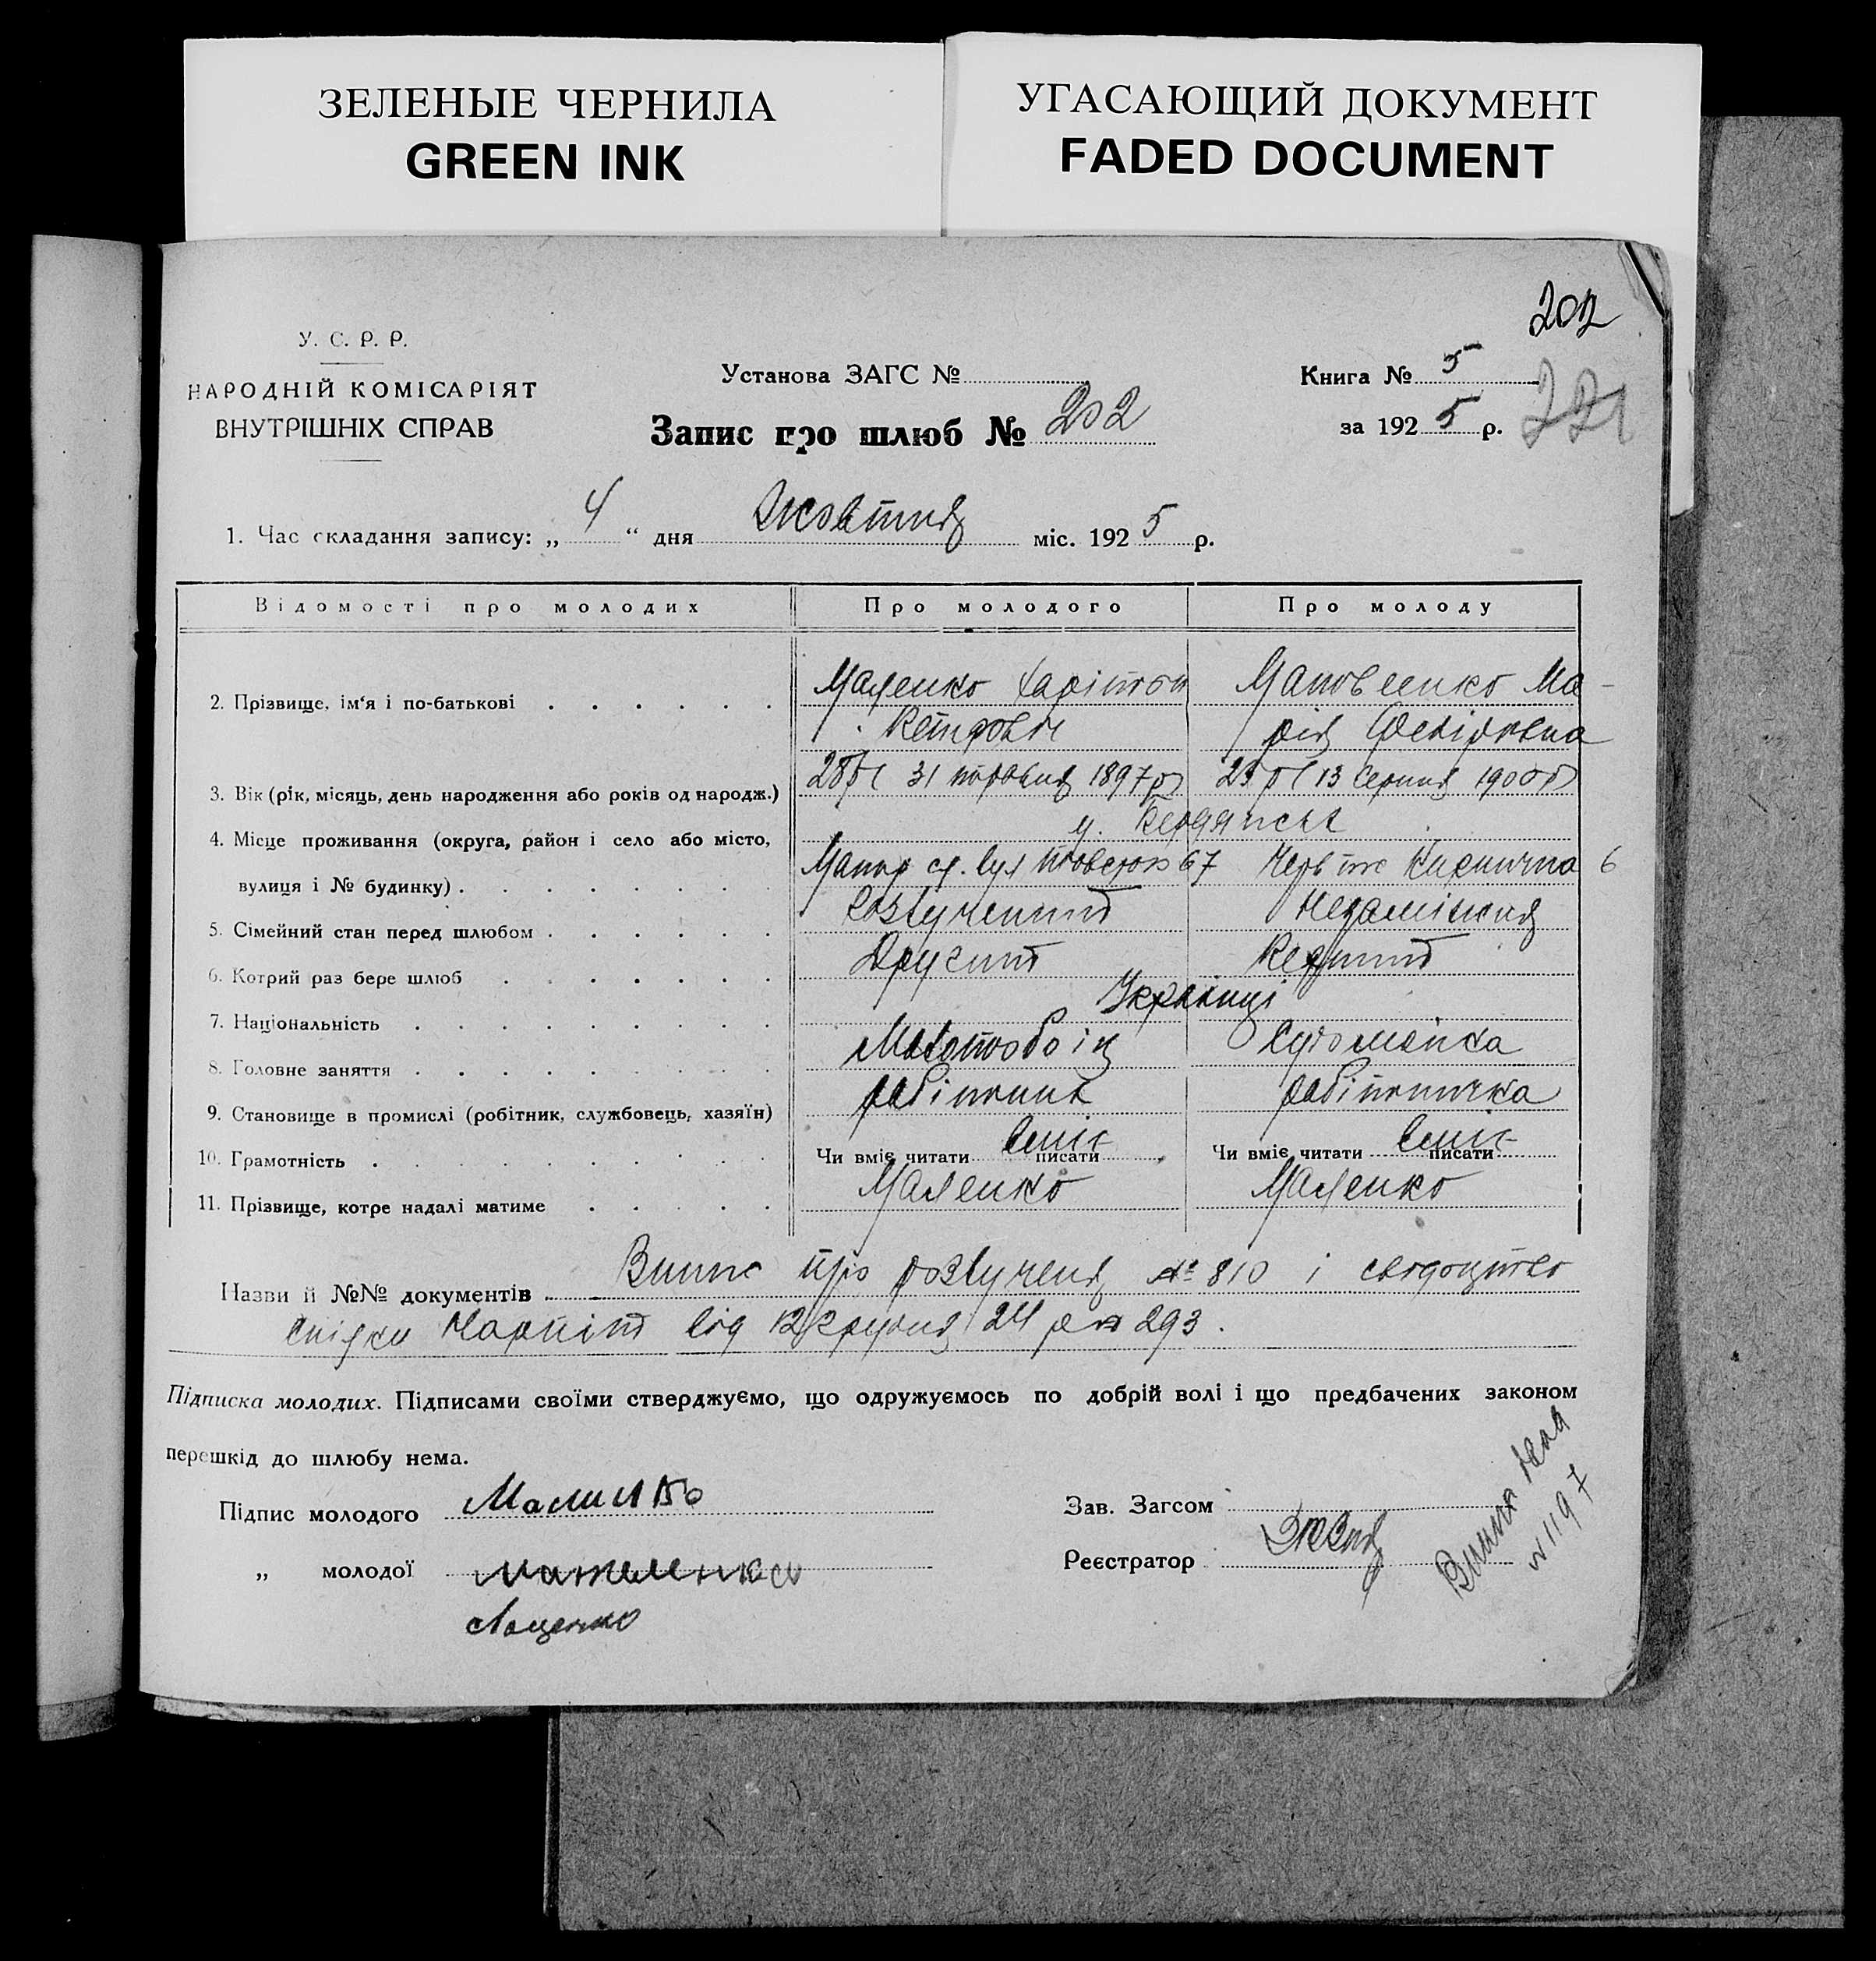 ЗЕЛЕНЫЕ ЧЕРНИЛА
GREEN INK
УГАСАЮЩИЙ ДОКУМЕНТ
FADED DOCUMENT
202
У. С. Р. Р.
НАРОДНІЙ КОМІСАРІЯТ
ВНУТРІШНІХ СПРАВ
Установа ЗАГС №
Запис про шлюб № 202
Книга № 5
за 1925 р.
221
1. Час складання запису: „ 4 “ дня Жовтня міс. 1925 р.
Відомості про молодих Про молодого Про молоду
2. Прізвище, ім‘я і по-батькові Маленко Харітон Матвеенко Ма-
Петрович рія Федіровна
3. Вік (рік, місяць, день народження або років од народж.) 28 р. 31 травня 1897 р 25 р. 13 серпня 1900 р
4. Місце проживання (округа, район і село або місто, м. Бердянськ
вулиця і № будинку) вул 67 6
5. Сімейний стан перед шлюбом Розлучений Незаміжня
6. Котрий раз бере шлюб Другий Первий
7. Національність Українці
8. Головне заняття Молотобоіц Судомойка
9. Становище в промислі (робітник, службовець, хазяїн) робітник робітничка
10. Грамотність Чи вміє читати писати вміє Чи вміє читати писати вміє
11. Прізвище, котре надалі матиме Маленко Маленко
Назви й №№ документів Випис про розлученя № 810 і свідоцтво
спілки Нарпіт від 12 грудня 24 р № 293.
Підписка молодих. Підписами своїми стверджуємо, що одружуємось по добрій волі і що предбачених законом
перешкід до шлюбу нема.
Підпис молодого
„ молодої
Зав. Загсом
Реєстратор
№ 1197